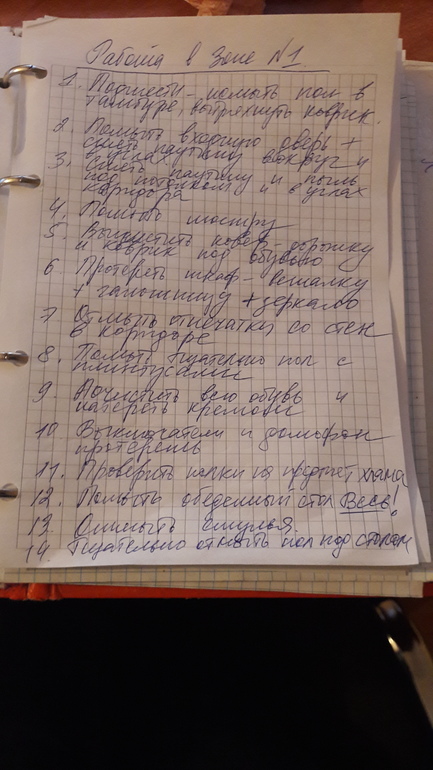 Работа в Зоне №1.
1. Подмести - помыть пол в
тамбуре, вытряхнуть коврик.
2. Помыть входную дверь +
снять паутину вокруг и
в углах
3. Снять паутину и пыль
под потолком и в углах
коридора
4. Помыть люстру
5. Вычистить ковёр дорожку
и коврик под обувью
6 Протереть шкаф-вешалку
+ галошницу + зеркало
7 Отмыть отпечатки со стен
в коридоре
8. Помыть тщательно пол с
плинтусами
9. Почистить всю обувь и
натереть кремом
10. Выключатели и домофон
протереть
11. Проверить полки на предмет хлама
12. Помыть обеденный стол Весь!
13. Отмыть стулья.
14. Тщательно отмыть пол под столом